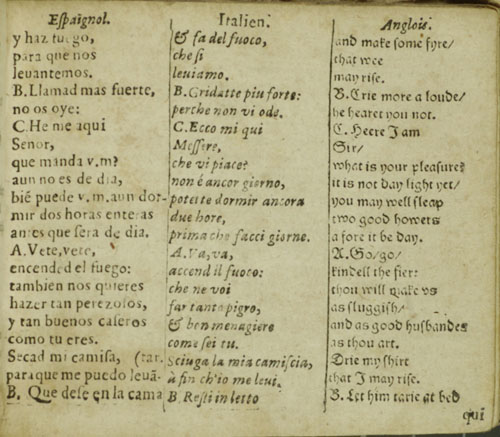 Espaignol.
y haz fuego,
para que nos
leuantemos.
B. Llamad mas fuerte,
no os oye:
C. He me aqui
Senor,
que manda v.m?
aun no es de dia,
bié puede v.m. aun dor-
mir dos horas enteras
antes que sera de dia.
A. Vete, vete,
encended el fuego:
tambien nos quieres
hazer tan perezosos,
y tan buenos caseros
como tu eres.
Secad mi camisa, (tar.
para que me puedo leuā-
B. Que dese en la cama
Italien.
& fa del fuoco,
che si
leuiamo.
B. Gridatte piu forte:
perche non vi ode.
C. Ecco mi qui
Messire,
che vi piace?
non é ancor giorno,
potette dormir ancora
due hore,
prima che facci giorne.
A. Va, va,
accend il fuoco:
che ne voi
far tanto pigro,
& ben menagiere
come sei tu.
Sciuga la mia camiscia,
à fin ch'io me leui.
B. Resti in letto
Anglois.
and make some fyre/
that wee
may rise.
B. Crie more a loude/
he hearet you not.
C. Heere I am
Sir/
what is your pleasure?
it is not day light yet/
you may well sleap
two good howers
a fore it be day.
A. Go/ go/
kindell the fier:
thou will make vs
as sluggish/
and as good husbandes
as thou art.
Drie my shirt
that I may rise.
B. Let him tarie at bed
qui